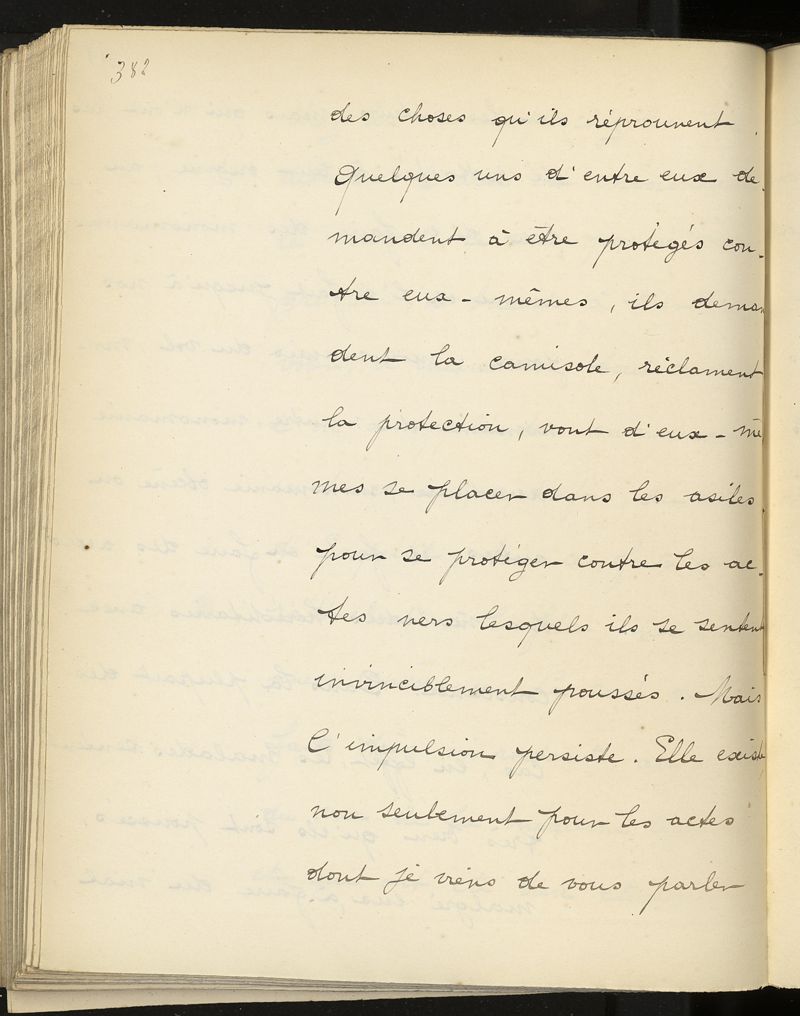 382
des choses qu'ils réprouvent.
Quelques uns d'entre eux de-
mandent à être protégés con-
tre eux-mêmes, ils deman
dent la camisole, réclament
la protection, vont d'eux-mê
mes se placer dans les asiles
pour se protéger contre les ac-
tes vers lesquels ils se sentent
invinciblement poussés. Mais
l'impulsion persiste. Elle existe
non seulement pour les actes
dont je viens de vous parler